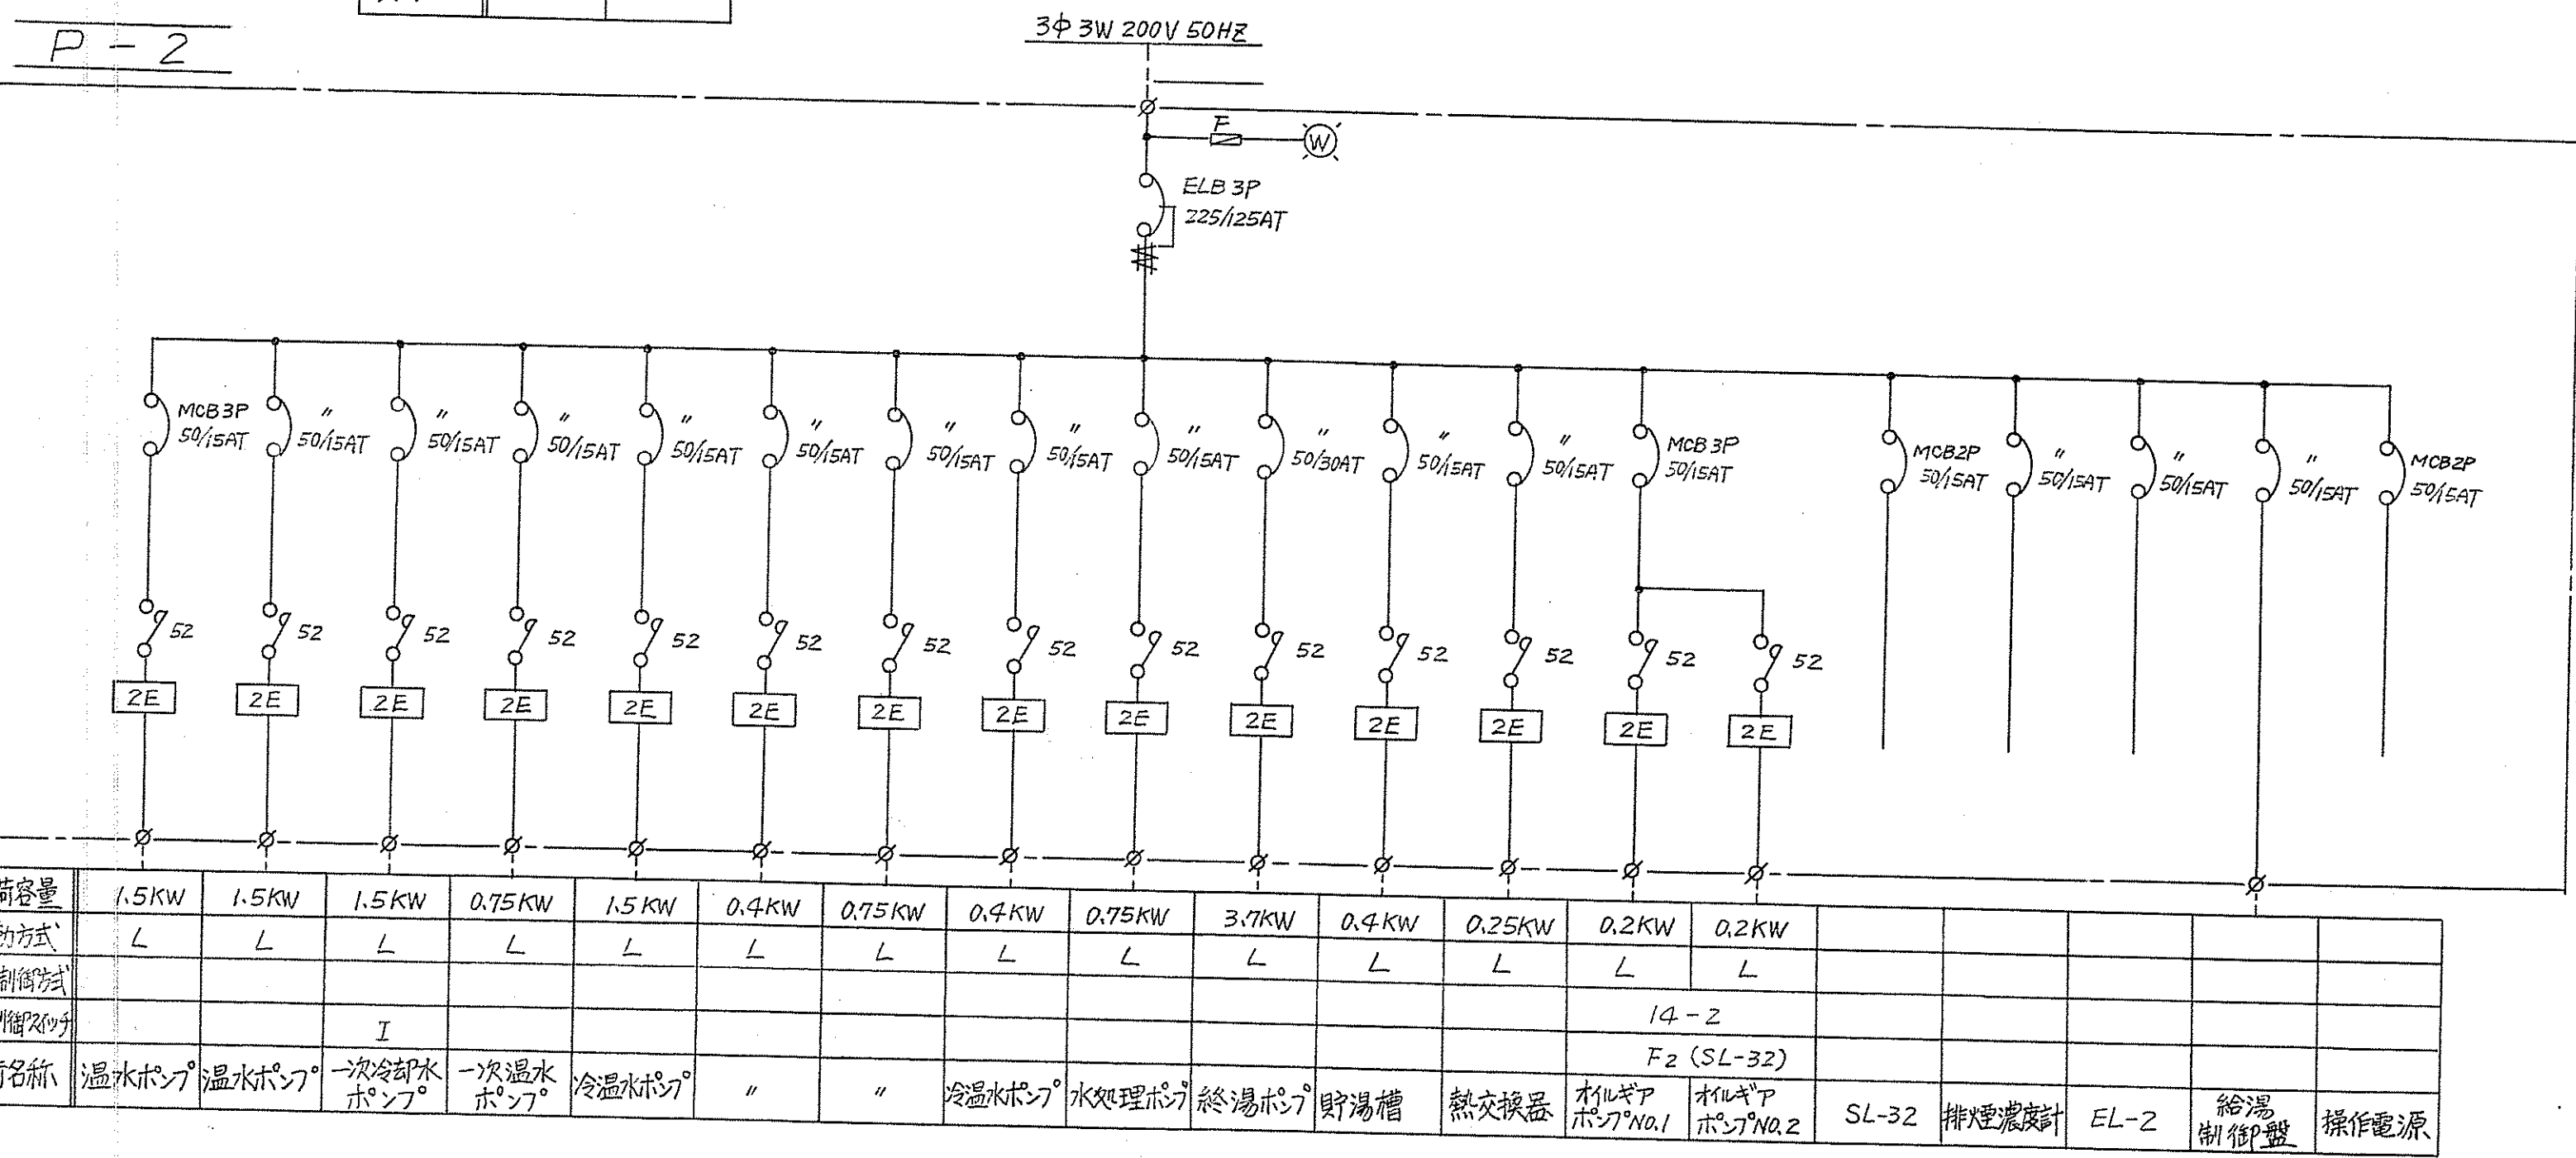 P - 2
3Φ 3W 200V 50HZ
F
W
ELB 3P
225/125AT
MCB3P 〃 〃 〃 〃 〃 〃 〃 〃 〃 〃 〃 MCB 3P MCB2P 〃 〃 〃 MCB2P
50/15AT 50/15AT 50/15AT 50/15AT 50/15AT 50/15AT 50/15AT 50/15AT 50/15AT 50/30AT 50/15AT 50/15AT 50/15AT 50/15AT 50/15AT 50/15AT 50/15AT 50/15AT
52 52 52 52 52 52 52 52 52 52 52 52 52 52
2E 2E 2E 2E 2E 2E 2E 2E 2E 2E 2E 2E 2E 2E
荷容量 1.5KW 1.5KW 1.5KW 0.75KW 1.5KW 0.4KW 0.75KW 0.4KW 0.75KW 3.7KW 0.4KW 0.25KW 0.2KW 0.2KW
動方式 L L L L L L L L L L L L L L
制御方式 14-2
制御スイッチ I F2 (SL-32)
名称 温水ポンプ 温水ポンプ 一次冷却水 一次温水 冷温水ポンプ 〃 〃 冷温水ポンプ 水処理ポンプ 終湯ポンプ 貯湯槽 熱交換器 オイルギア オイルギア SL-32 排煙濃度計 EL-2 給湯 操作電源
ポンプ ポンプ ポンプNO.1 ポンプNO.2 制御盤